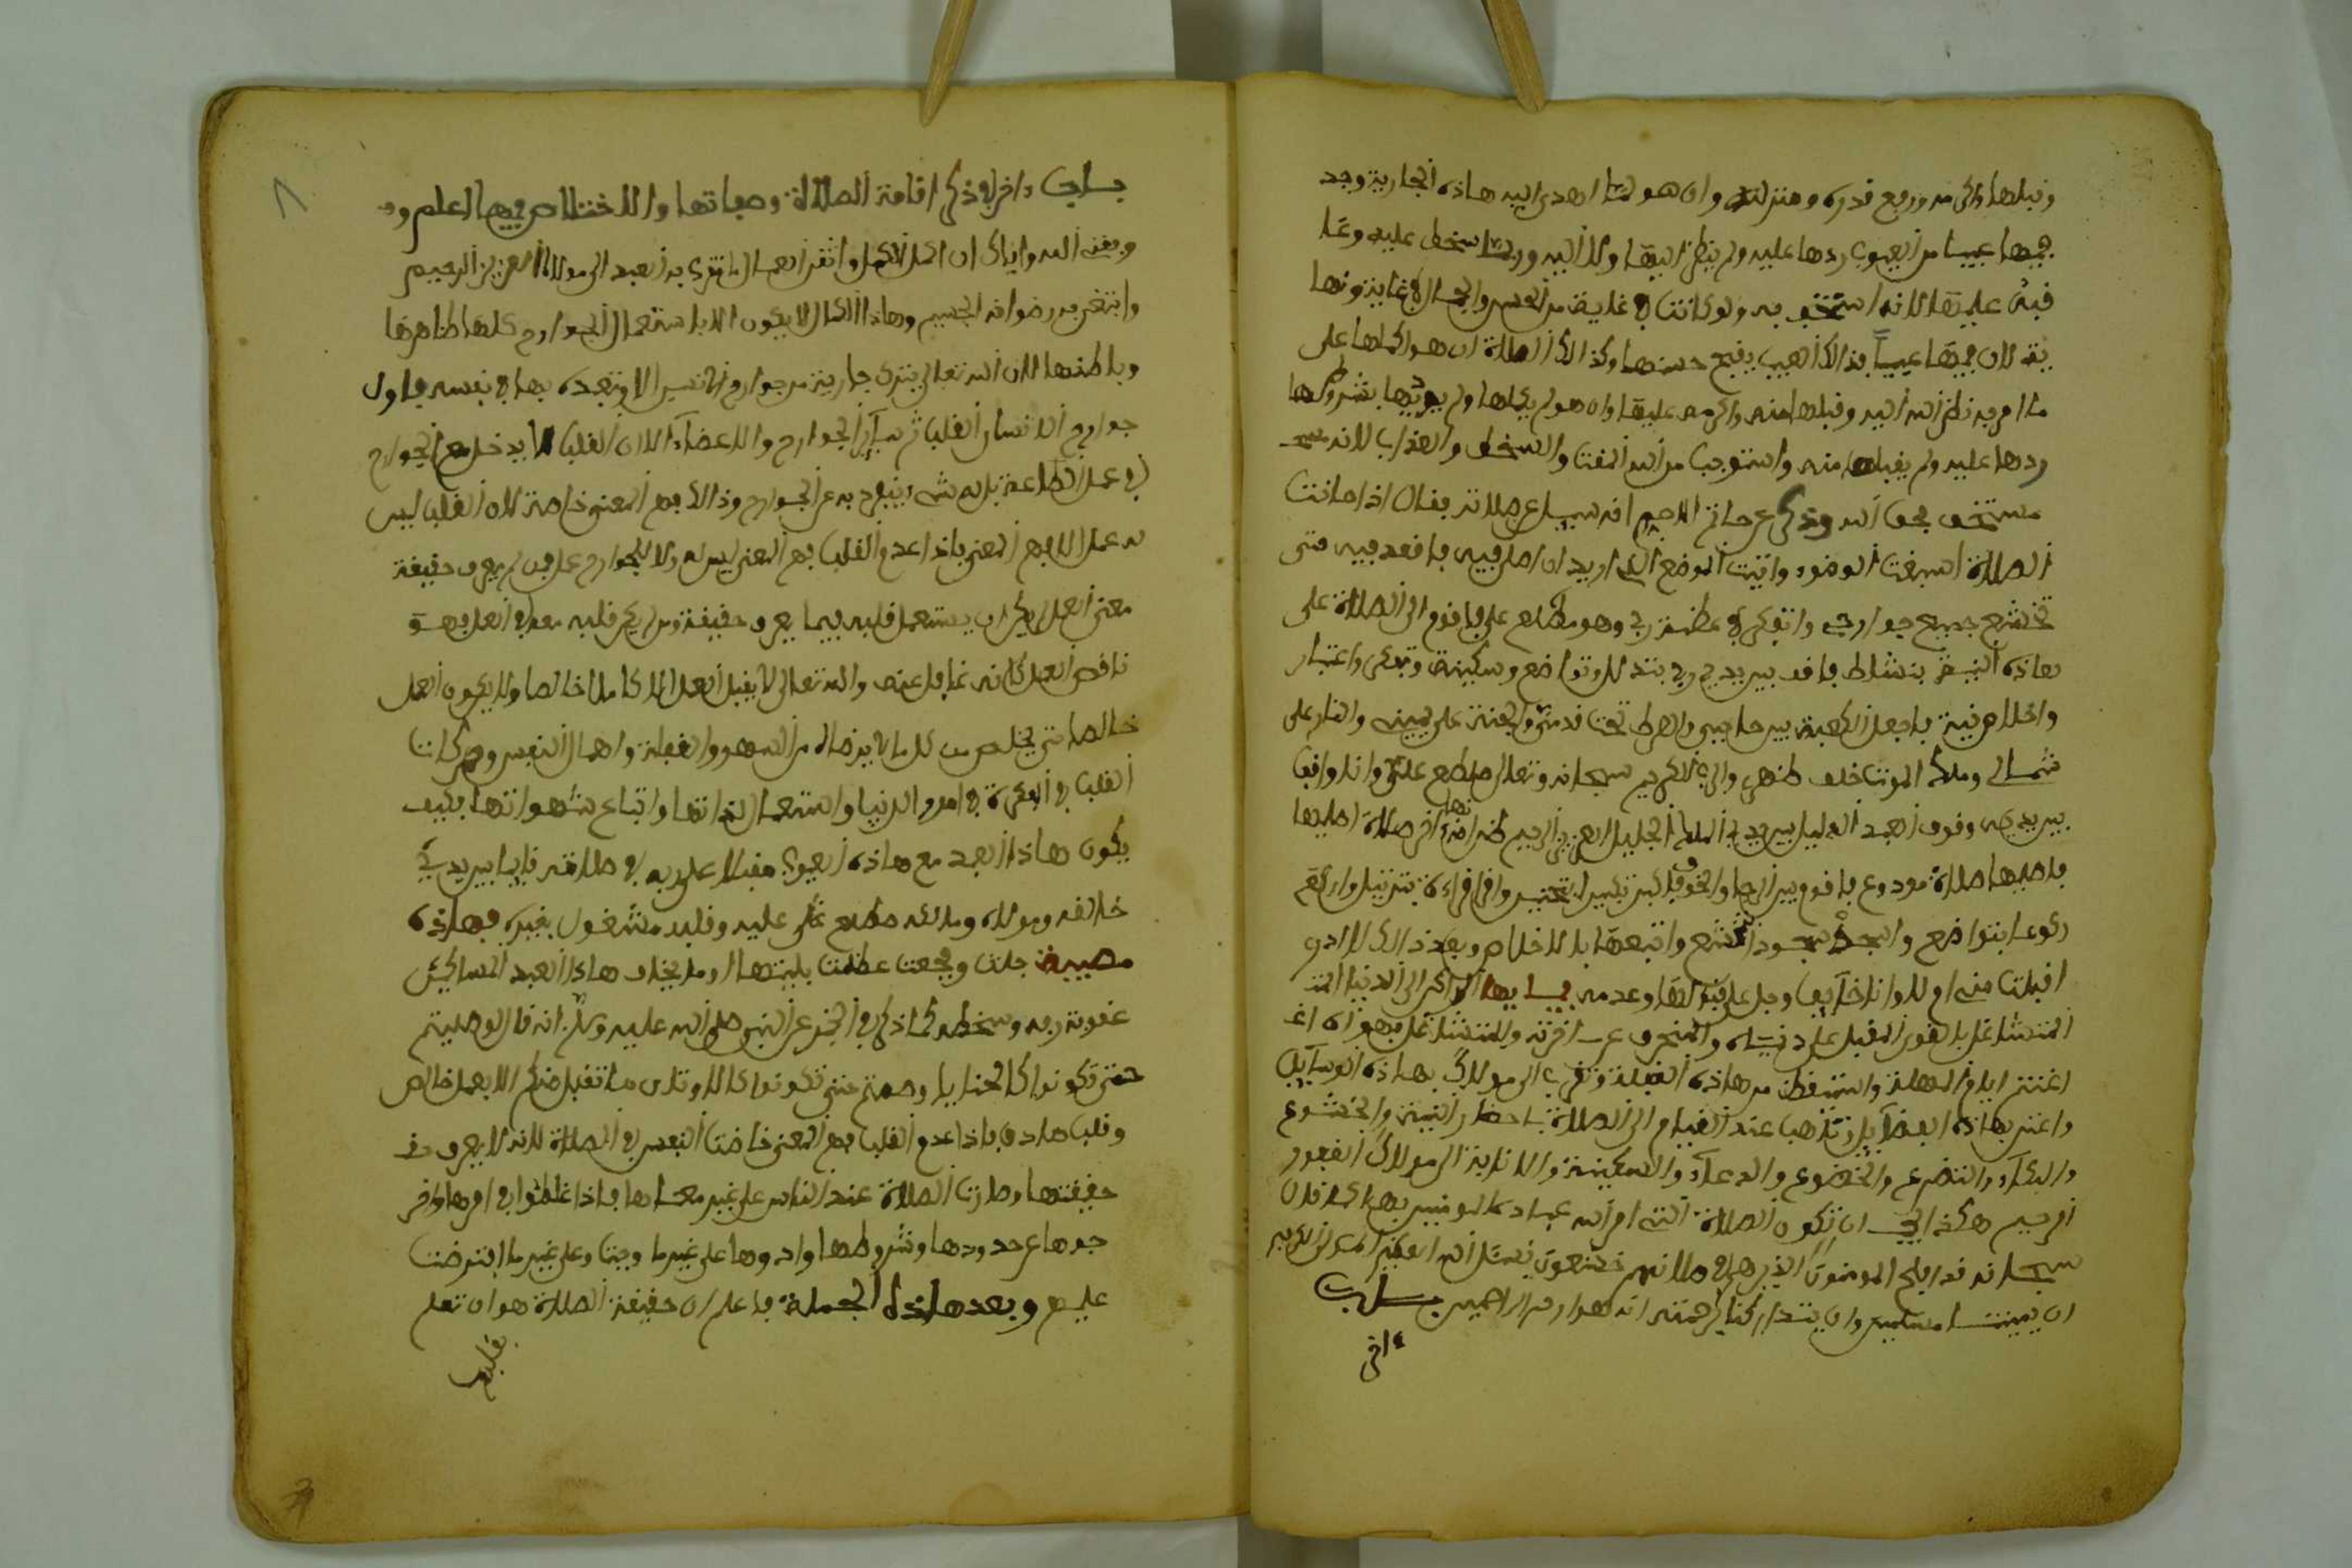 وقبلها واكرمه ورفع قدره ومنزلته وان هو لما اهدى اليه هاذه الجارية وجد
فيها عيبا من العيوب ردها عليه ولم ينظر اليها ولا اليه وربما سخط عليه وعا
قبه عليها لانه استخف به ولو كانت في غاية من الحسن والجمال في غايتونها
ية لان فيها عيبا فذالك العيب يقبح حسنها وكذالك الصلاة ان هو اكملها على
ما امر به نظر الله اليه وقبلها منه واكرمه عليها وان هو لم يكملها ولم يوتها بشروطها
ردها عليه ولم يقبلها منه واستوجب من الله المقت والسخط والعذاب لانه
مستخف بحق الله وذكر عن حاتم الاصم انه سيل عن صلاته فقال اذا حانت
الصلاة اسبغت الوضوء واتيت الموضع الذي اريد ان اصلي فيه فاقعد فيه حتى
تخشع جميع جوارحي واتفكر في عظمة ربي وهو مطلع علي فاقوم الى الصلاة على
هاذه النية بنشاط فاقف بين يدي ربي بتذلل وتواضع وسكينة وتفكر واعتبار
واخلاص نية فاجعل الكعبة بين حاجبي والصراط تحت قدمي والجنة على يميني والنار على
شمالي وملك الموت خلف ظهري والى الكريم سبحانه وتعالى مطلع علي وانا واقف
بين يديه وقوف العبد الذليل بين يدي الملك الجليل العزيز الرحيم ظنا انها اخر صلاة اصليها
فاصليها صلاة مودع فاقوم بين الرجا والخوف فاكبر تكبيرا بتحنين واقرا قراءة بترتيل واركع
ركوعا بتواضع واسجد سجود التخشع واتبعها بالاخلاص وبعد ذالك لا ادري
اقبلت مني ام لا وانا خايف وجل على قبولها وعدمه فيا ايها الراكن الى الدنيا
المتشاغل بالهوى المقبل على دنياه والمنحرف عن اخرته والمتشاغل بهواه
اغتنم ايام المهلة واستيقظ من هاذه الغفلة وتقرب الى مولاك بهاذه الوسايل
واعتن بهاذه الفضايل وتاهب عند القيام الى الصلاة باحضار النية والخشوع
والبكاء والتضرع والخضوع والدعاء والسكينة والانابة الى مولاك الغفور
الرحيم هكذا يجب ان تكون الصلاة التي امر الله عباده المومنين بها كما قال
سبحانه قد افلح المومنون الذين هم في صلاتهم خاشعون نسئل الله العظيم المولى الكريم
ان يميتنا مسلمين وان يتداركنا برحمته انه هو ارحم الراحمين باب
ءاخر
باب ءاخر في ذكر اقامة الصلاة وصفاتها والاختلاص فيها اعلم
وفقنا الله واياك ان اكمل العمل واتقن العمل ما تقرب به العبد الى مولاه العزيز الرحيم
وابتغى به رضوانه الجسيم وهاذا الكمال لا يكون الا باستعمال الجوارح كلها ظاهرها
وباطنها لان الله تعالى يترك جارية من جوارح الانسان الا وتعبده بها في نفسه فاول
جوارح الانسان القلب ثم ساير الجوارح والاعضاء الا ان القلب لا يدخل مع الجوارح
في عمل الطاعة بل له شيء ينفرد به عن الجوارح وذالك فهم المعنى خاصة لان القلب ليس
له عمل الا فهم المعنى فاذا عدم القلب فهم المعنى ليس له ولا للجوارح عمل فمن لم يعرف حقيقة
معنى العمل لم يكن ان يستعمل قلبه فيما يعرف حقيقة ومن لم يكن قلبه معه في العمل فهو
ناقص العمل كانه غافل عنه والله تعالى لا يقبل العمل الا كاملا خالصا ولا يكون العمل
خالصا حتى يخلص من كل ما لا يرضاه من السهو والغفلة واهمال النفس وحركات
القلب في الفكرة في امور الدنيا واستعمال لذاتها واتباع شهواتها فكيف
يكون هاذا العبد مع هاذه العيوب مقبلا على ربه في صلاته قايما بين يدي
خالقه ومولاه ومالكه مطلع عليه وقلبه مشغول بغيره فهاذه
مصيبة جلت وفجعت عظمت بليتها اوما يخاف هاذا العبد المسكين
عقوبة ربه وسخطه كما ذكر في الخبر عن النبي صلى الله عليه وسلم انه قال لو صليتم
حتى تكونوا كالحنايا وصمتم حتى تكونوا كالاوتار ما تقبل منكم الا بعمل خالص
وقلب صادق فاذا عدم القلب فهم المعنى خاضت النفس في الصلاة لانه لا يعرف
حقيقتها وصارت الصلاة عند الناس على غير معناها فاذا غلطوا في امرها واخر
جوها عن حدودها وشروطها وادوها على غير ما وجبت وعلى غير ما افترضت
عليهم وبعد هاذه الجملة فاعلم ان حقيقة الصلاة هو ان تعلم